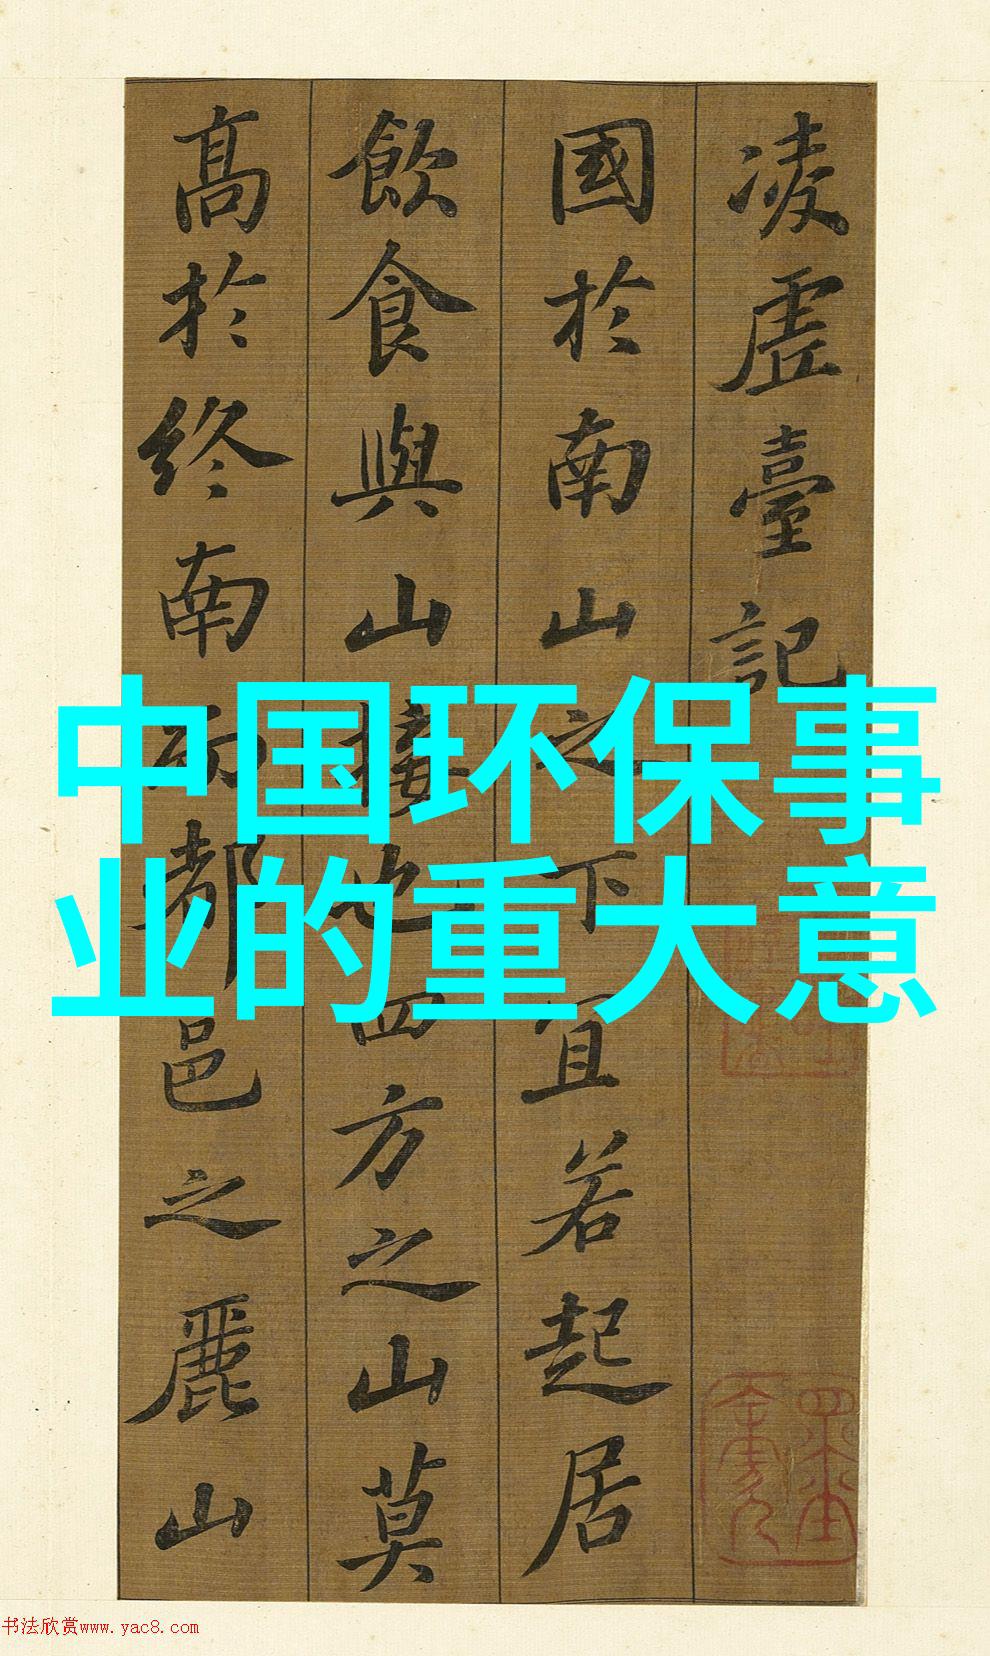 凌虛臺記
國於南山之下宜若起居
飲食與山接也四方之山莫
高於終南而都邑之麗山
中国环保事
业的重大意
书法欣赏www.yac8.com